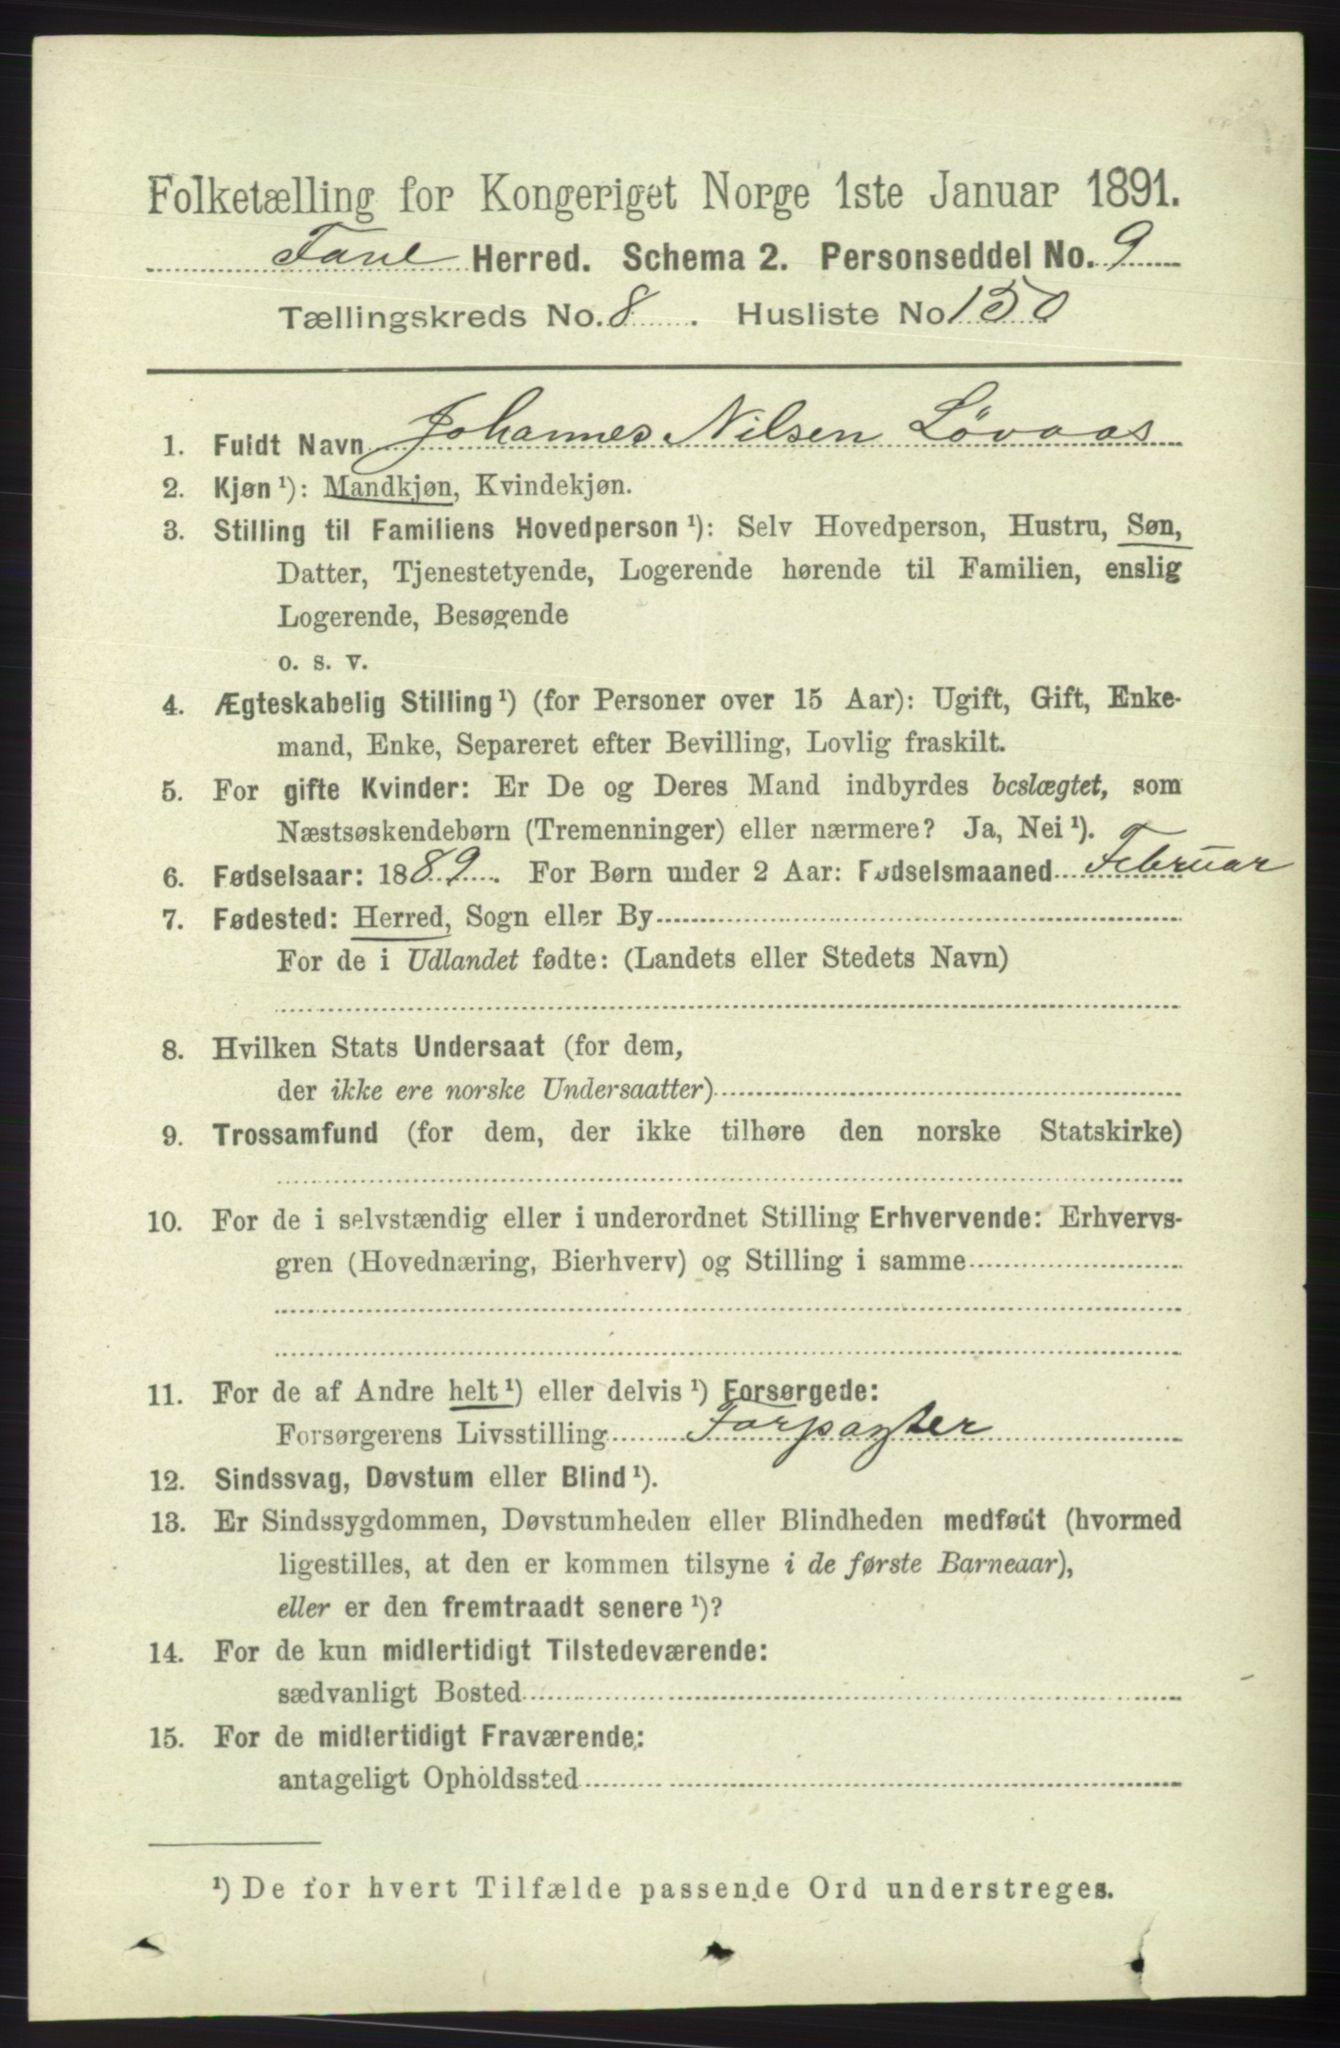 Folketælling for Kongeriget Norge 1ste Januar 1891.
Fane Herred. Schema 2. Personseddel No. 9
Tællingskreds No. 8. Husliste No 150
1. Fuldt Navn Johannes Nilsen Løvaas
2. Kjøn ¹): Mandkjøn, Kvindekjøn.
3. Stilling til Familiens Hovedperson ¹): Selv Hovedperson, Hustru, Søn,
Datter, Tjenestetyende, Logerende hørende til Familien, enslig
Logerende, Besøgende
o. s. v.
4. Ægteskabelig Stilling ¹) (for Personer over 15 Aar): Ugift, Gift, Enke-
mand, Enke, Separeret efter Bevilling, Lovlig fraskilt.
5. For gifte Kvinder: Er De og Deres Mand indbyrdes beslægtet, som
Næstsøskendebørn (Tremenninger) eller nærmere? Ja, Nei ¹).
6. Fødselsaar: 1889. For Børn under 2 Aar: Fødselsmaaned Februar
7. Fødested: Herred, Sogn eller By
For de i Udlandet fødte: (Landets eller Stedets Navn)
8. Hvilken Stats Undersaat (for dem,
der ikke ere norske Undersaatter)
9. Trossamfund (for dem, der ikke tilhøre den norske Statskirke)
10. For de i selvstændig eller i underordnet Stilling Erhvervende: Erhvervs-
gren (Hovednæring, Bierhverv) og Stilling i samme
11. For de af Andre helt ¹) eller delvis ¹) Forsørgede:
Forsørgerens Livsstilling Forpagter
12. Sindssvag, Døvstum eller Blind ¹).
13. Er Sindssygdommen, Døvstumheden eller Blindheden medfødt (hvormed
ligestilles, at den er kommen tilsyne i de første Barneaar),
eller er den fremtraadt senere ¹)?
14. For de kun midlertidigt Tilstedeværende:
sædvanligt Bosted
15. For de midlertidigt Fraværende:
antageligt Opholdssted
¹) De for hvert Tilfælde passende Ord understreges.